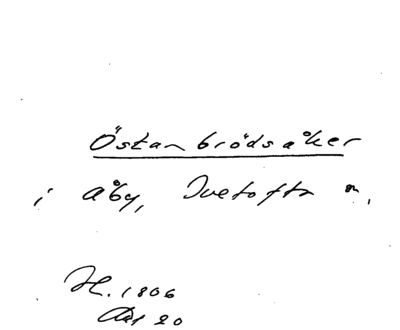 Östanbrödsåker
i Åby, Ivetofta n,
H. 1806
Akt 20